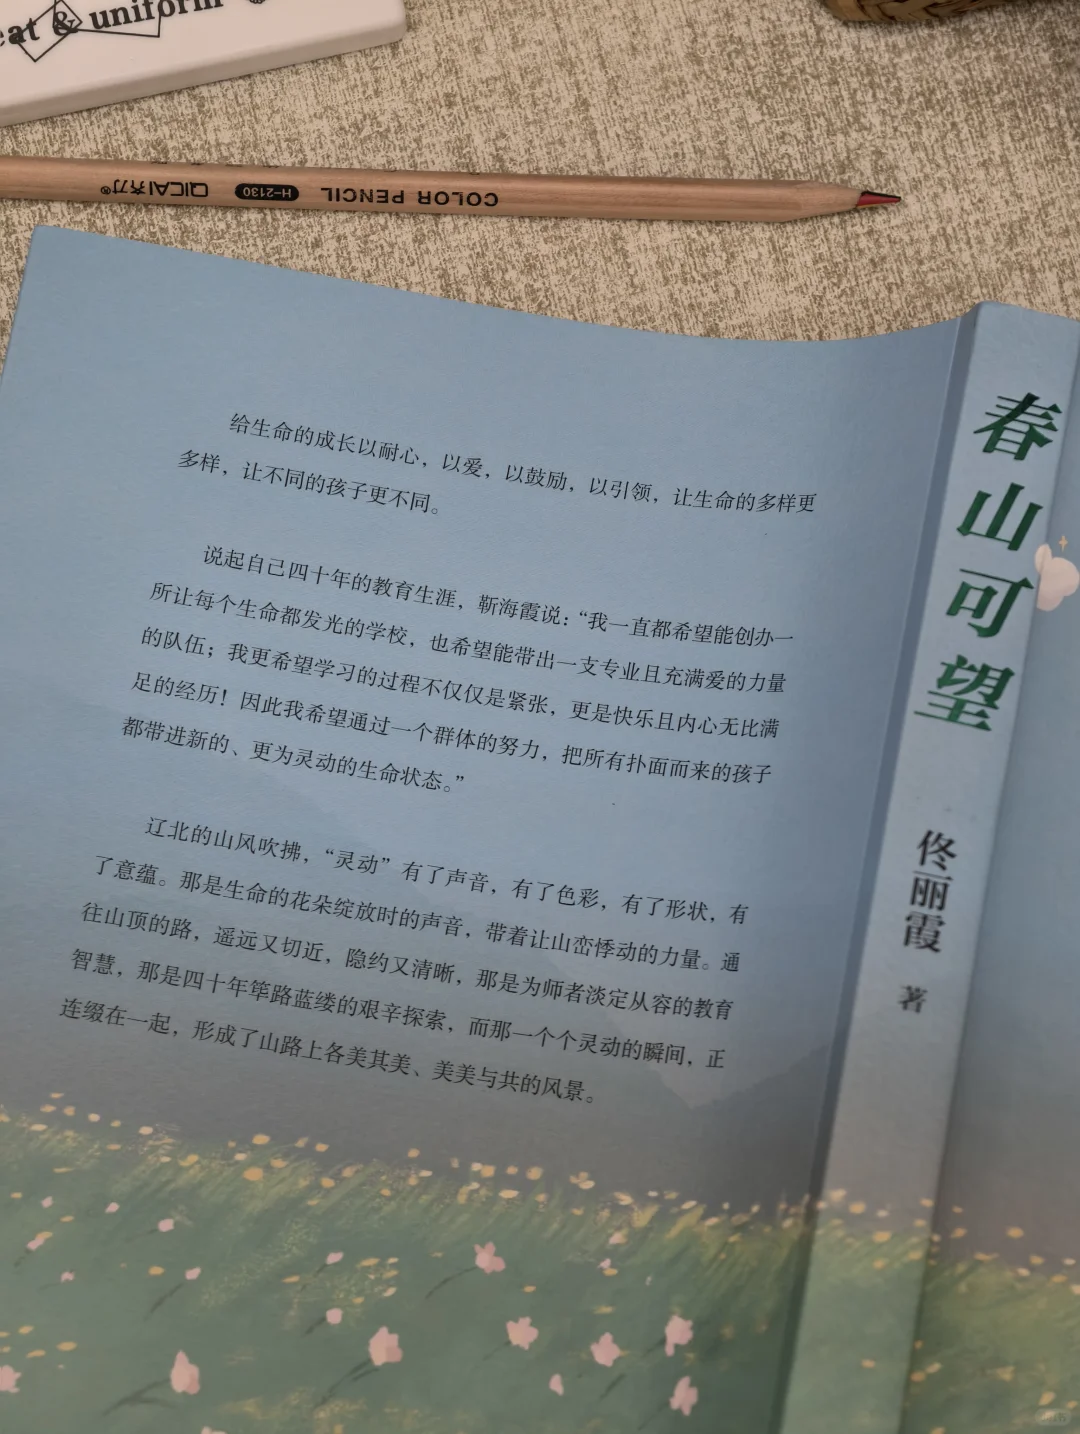 eat & uniform
QICAI齐才®
H-2130
COLOR PENCIL
给生命的成长以耐心，以爱，以鼓励，以引领，让生命的多样更
多样，让不同的孩子更不同。
说起自己四十年的教育生涯，靳海霞说：“我一直都希望能创办一
所让每个生命都发光的学校，也希望能带出一支专业且充满爱的力量
的队伍；我更希望学习的过程不仅仅是紧张，更是快乐且内心无比满
足的经历！因此我希望通过一个群体的努力，把所有扑面而来的孩子
都带进新的、更为灵动的生命状态。”
辽北的山风吹拂，“灵动”有了声音，有了色彩，有了形状，有
了意蕴。那是生命的花朵绽放时的声音，带着让山峦悸动的力量。通
往山顶的路，遥远又切近，隐约又清晰，那是为师者淡定从容的教育
智慧，那是四十年筚路蓝缕的艰辛探索，而那一个个灵动的瞬间，正
连缀在一起，形成了山路上各美其美、美美与共的风景。
春山可望
佟丽霞 著